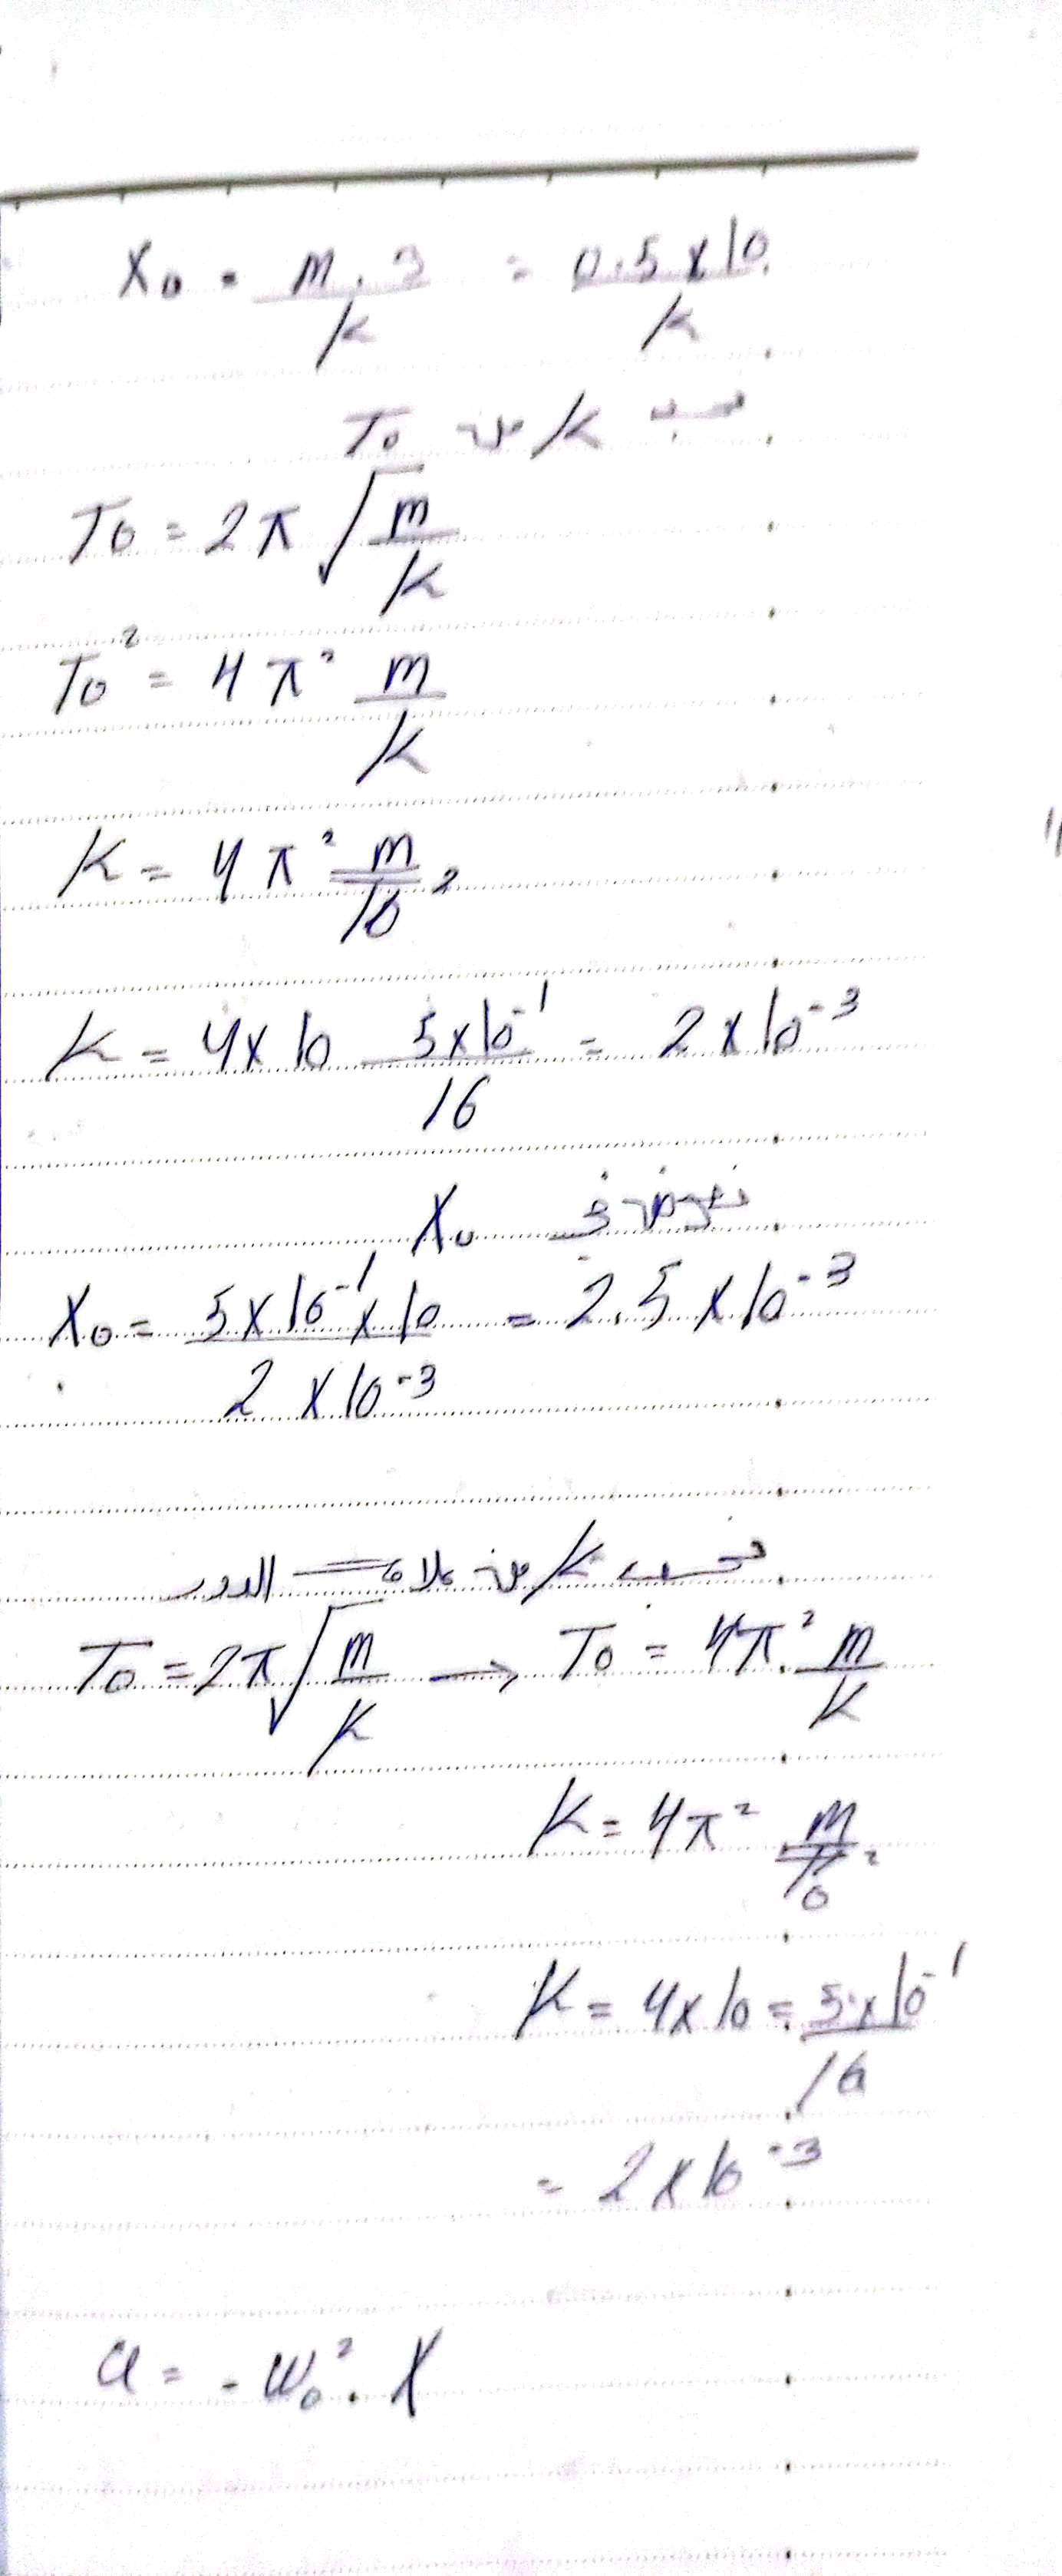 X₀ = m.g / k = 0.5 x 10 / k
نحسب k من T₀
T₀ = 2π √(m / k)
T₀² = 4π² m / k
k = 4π² m / T₀²
k = 4x10 5x10⁻¹ / 16 = 2 x 10⁻³
نعوض في X₀
X₀ = 5x10⁻¹ x 10 / 2 x 10⁻³ = 2.5 x 10⁻³
نحسب k من علاقة الدور
T₀ = 2π √(m / k) → T₀ = 4π². m / k
k = 4π² m / T₀²
k = 4x10 = 5x10⁻¹ / 16
= 2x10⁻³
a = - ω₀² . X